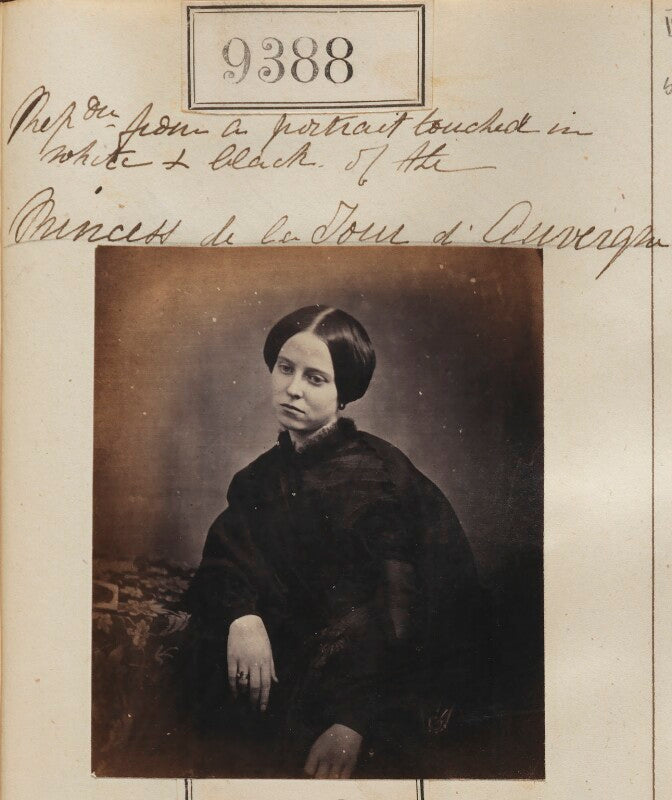 9388
Rep.dn from a portrait touched in
white & black. of the
Princess de la Tour d'Auvergne